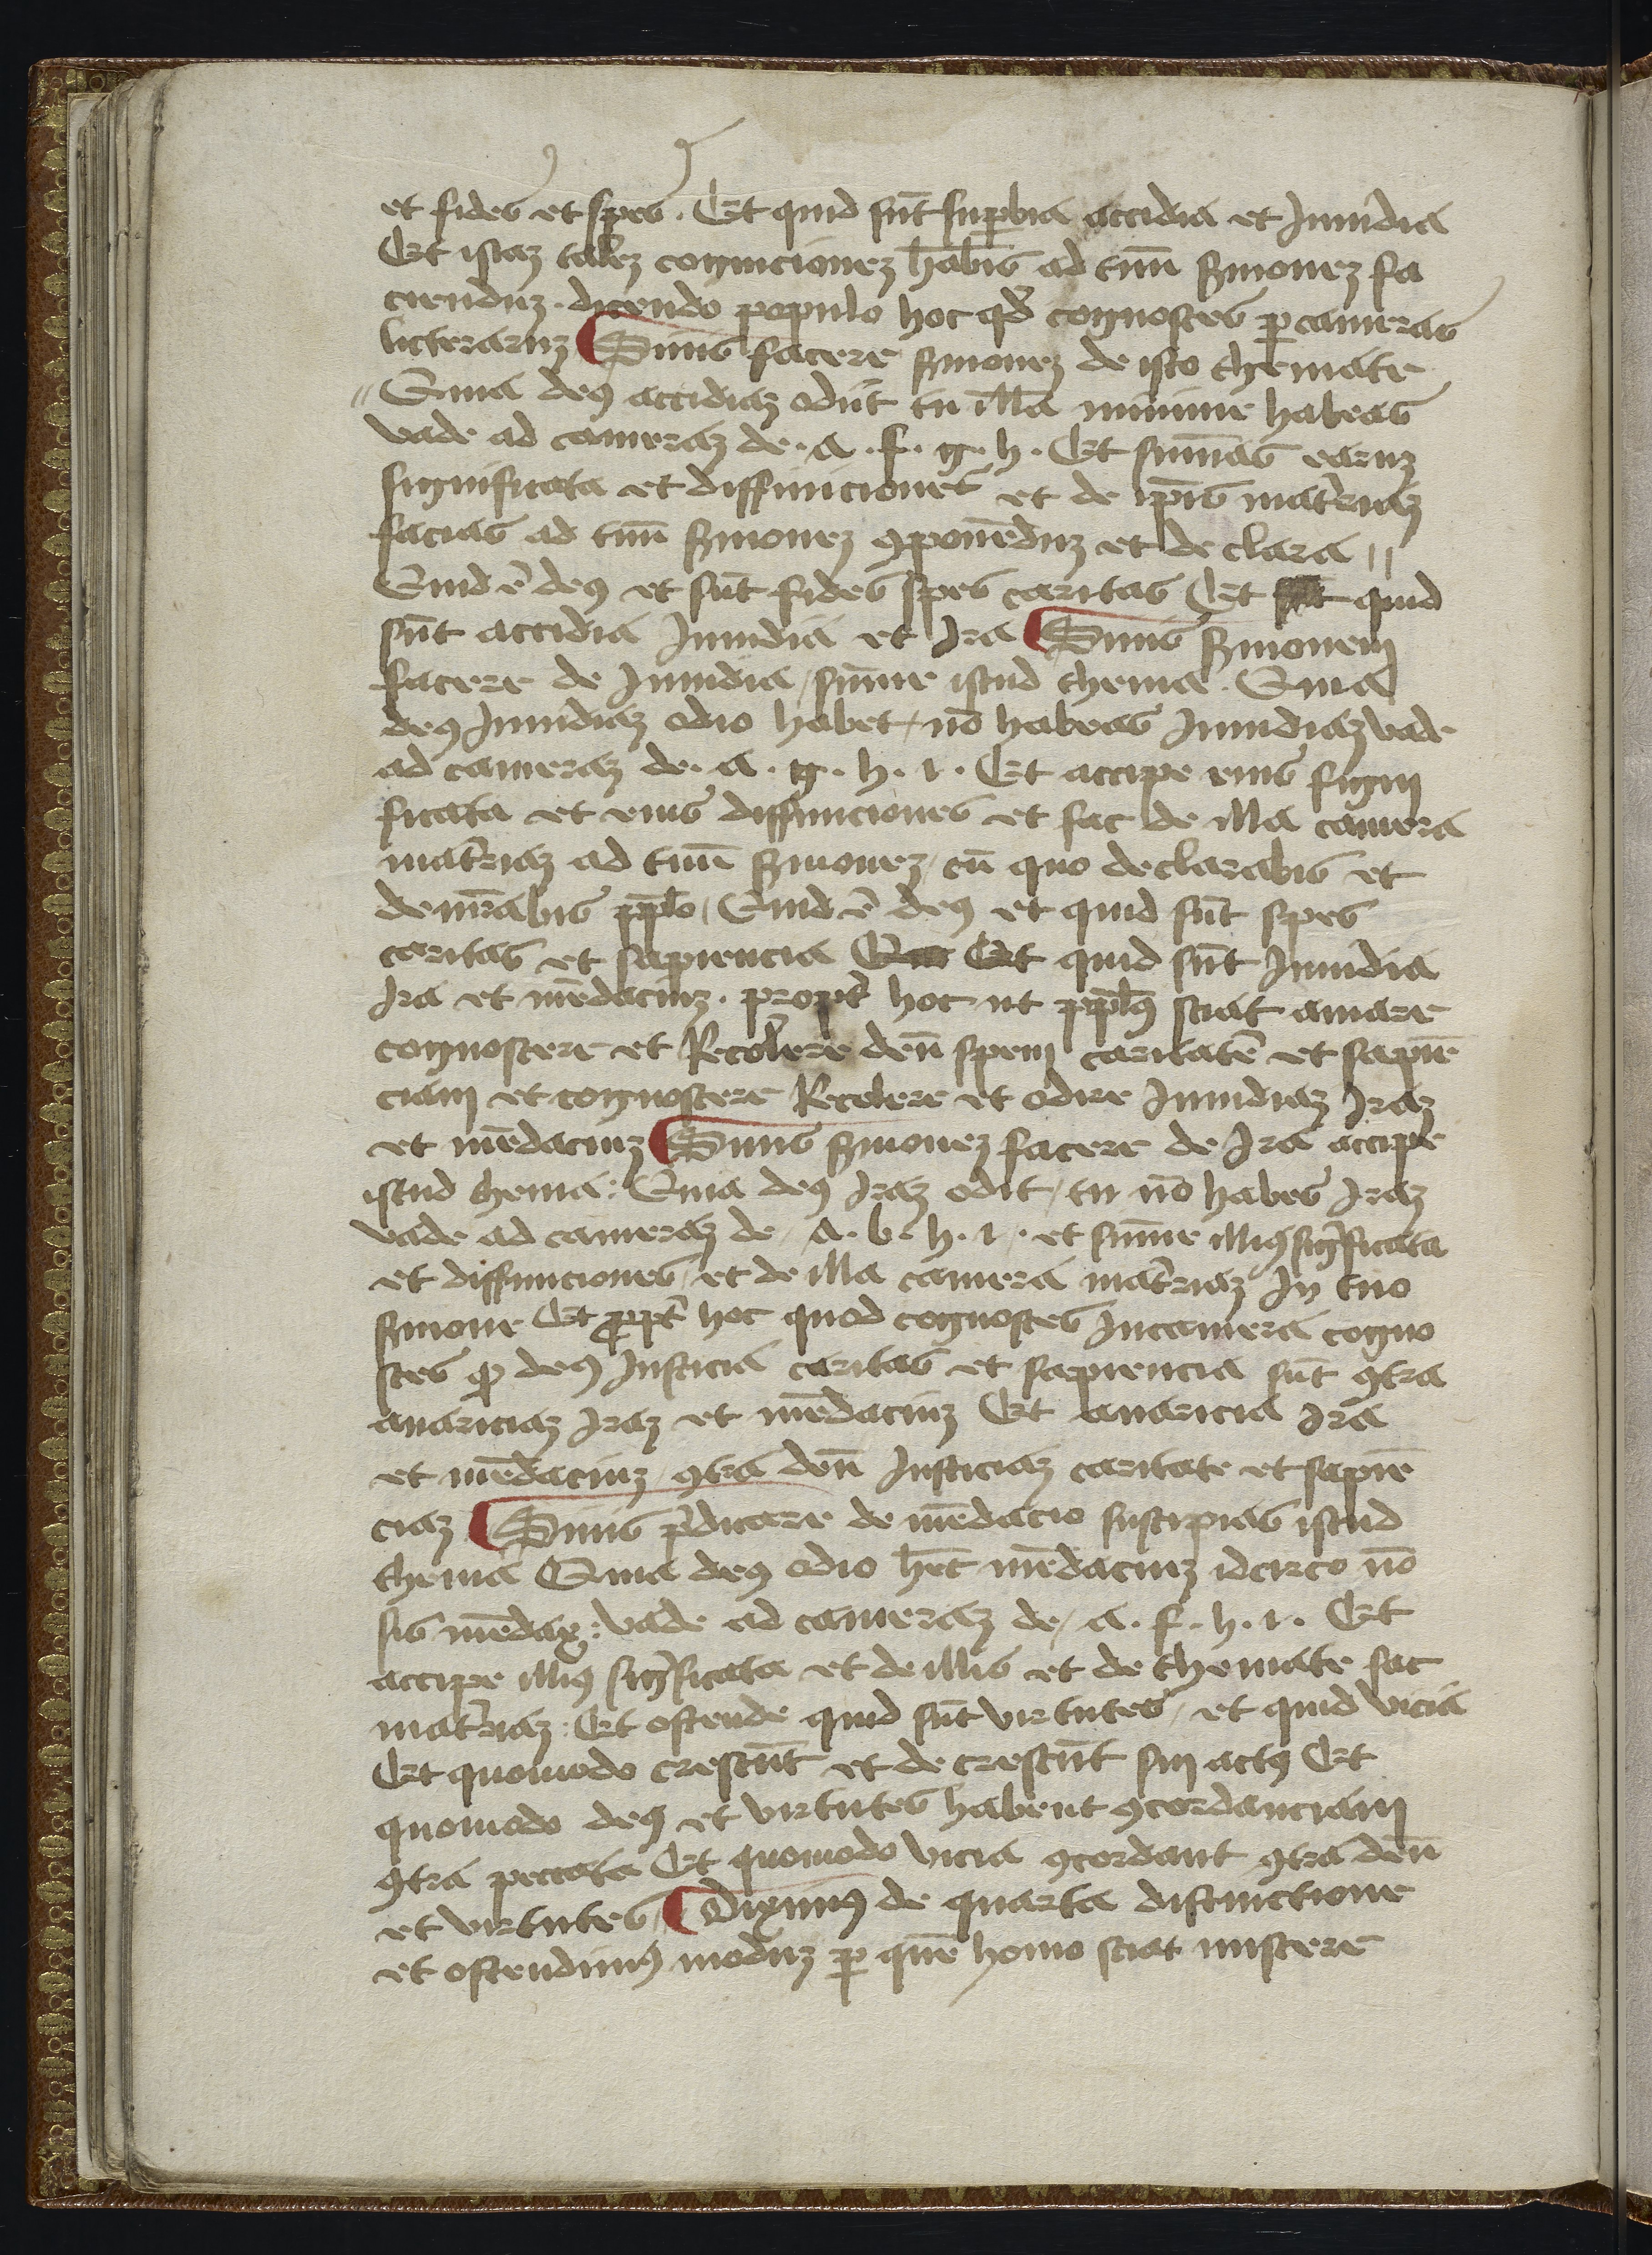 et fides et spes . Et quid sūt suꝑbia accidia et Inuidia
Et istaz talez cognicionez hābis ad tuū ẜmonez fa
ciendnz . dicendo populo hoc qđ cognosces ꝑ cameras
licteraruz Siuis facere ẜmonez de isto themate
" Quia deꝰ accidiaz odiit tu illā minime habeas
vade ad cameraz de . a . f . g . h . Et sumās earuz
significata et diffiniciones et de ip̄is mat̄iaz
facias ad tuū ẜmonez ꝯponēduz et declara //
Quid ē deꝰ et sūt fides spes caritas Et quid
sūt accidia Inuidia et Ira Siuis ẜmonem
facere de Inuidia / sūme istud thema . Quia
deꝰ Inuidiaz odio habet / nō habeas Inuidiaz vade
ad cameraz de . a . g . h . i . Et accipe eius signi
ficata et eius diffiniciones et fac de illa camera
mat̄iaz ad tuū ẜmonez / cū quo declarabis et
demr̄abis pp̄lo / Quid ē deꝰ et quid sūt spes
caritas et sapiencia Et quid sūt Inuidia
Ira et mēdaciuz . propt̄ hoc ut pp̄lꝰ sciat amare
cognoscere et Recolere deū spem caritatē et sapiē
ciam et cognoscere Recolere et odire Inuidiaz Iraz
et mēdaciuz Siuis ẜmonez facere de Ira accipe
istud thema : Quia deꝰ Iraz odit / tu nō habes Iraz
vade ad cameraz de / a . b . h . i . et sūme illiꝰ sigificata
et diffiniciones / et de illa camera mat̄iaz In tuo
ẜmone Et ꝓpt̄ hoc quod cognosces Incamera cogno
sces ꝙ deꝰ Iusticia caritas et sapiencia sūt ꝯtra
auariciaz Iraz et mēdaciuz Et auaricia Ira
et mēdaciuz / ꝯtra deū Iusticiaz caritate et sapiē
ciaz Siuis p̄dicare de mēdacio suscipias istud
thema Quia deꝰ odio hēt mēdaciuz idcirco nō
sis mēdax : vade ad cameraz de / a . f . h . i . Et
accipe illiꝰ sigificata et de illis et de themate fac
mat̄iaz : Et ostende quid sūt virtutes / et quid vicia
Et quomodo crescūt et decrescūt sui actꝰ Et
quomodo deꝰ et virtutes habent ꝯcordanciam
ꝯtra peccata Et quomodo vicia ꝯcordant ꝯtra deū
et virtutes / Diximꝰ de quarta distinctione
et ostendimꝰ moduz ꝑ quē homo sciat miscere